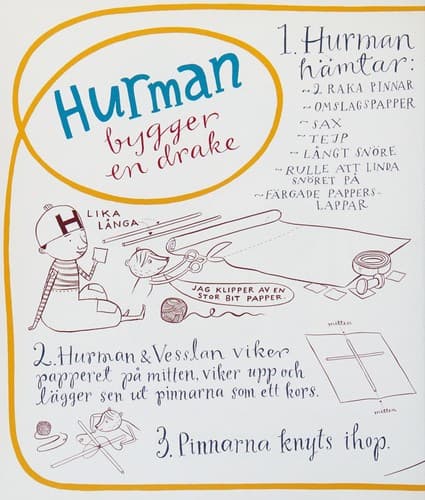 Hurman
bygger
en drake
1. Hurman
hämtar:
~ 2 RAKA PINNAR
~ OMSLAGSPAPPER
~ SAX
~ TEJP
~ LÅNGT SNÖRE
~ RULLE ATT LINDA
SNÖRET PÅ
~ FÄRGADE PAPPERS-
LAPPAR
H
LIKA
LÅNGA
JAG KLIPPER AV EN
STOR BIT PAPPER.
2. Hurman & Vesslan viker
papperet på mitten, viker upp och
lägger sen ut pinnarna som ett kors.
mitten
mitten
3. Pinnarna knyts ihop.